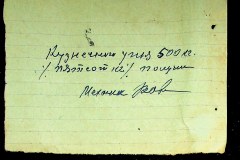 Кузнечного угля 500 кг.
/. пятсот кг /. получил
Механик